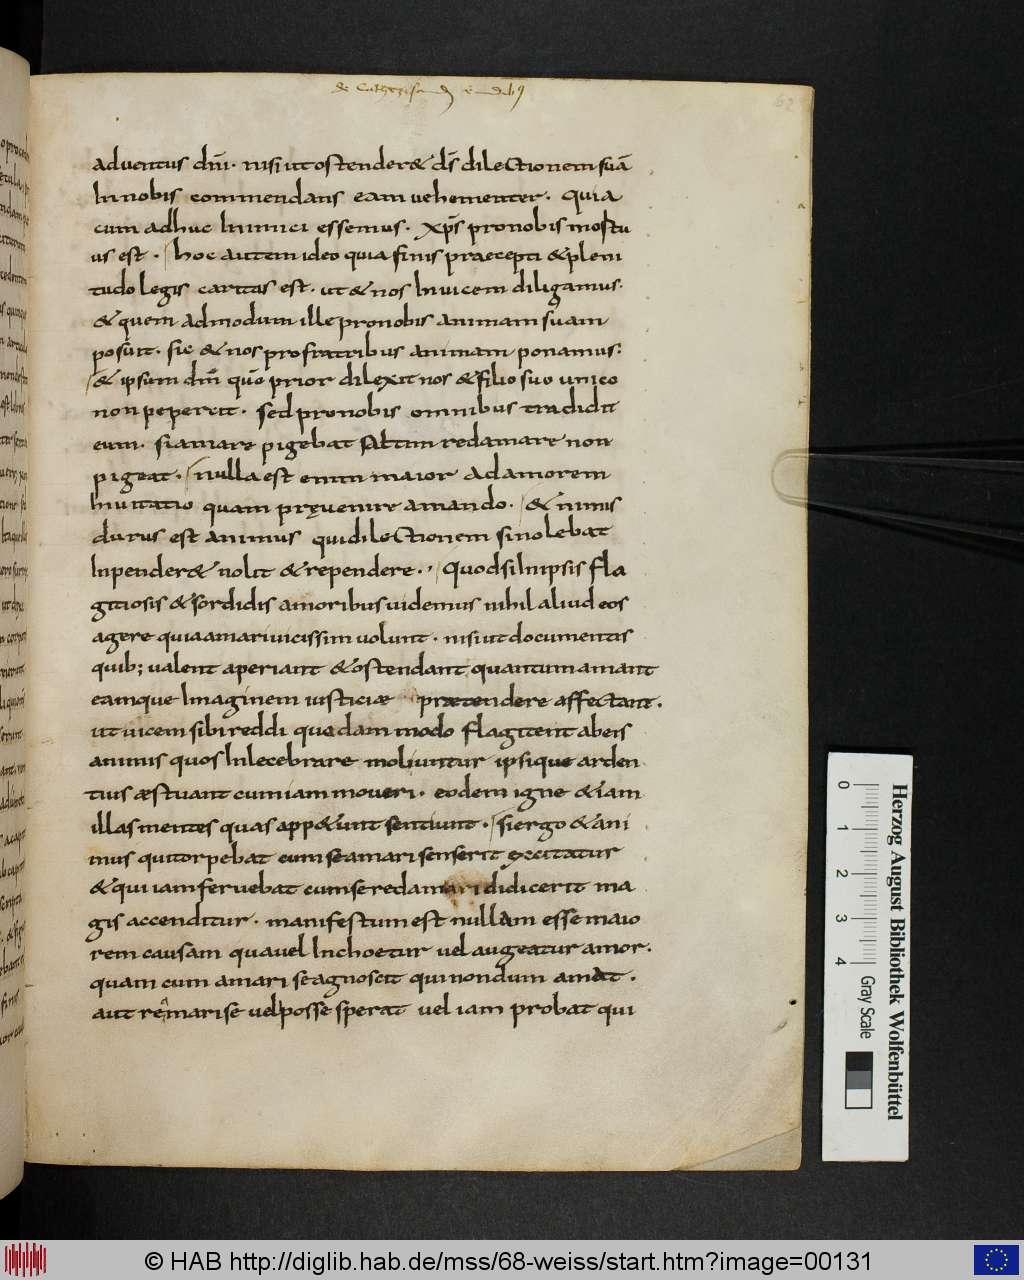 de Cathezisandis rudibꝰ
62
aduentus dn̅i. nisi ut ostender& ds̅ dilectionem suā
In nobis commendans eam uehementer. quia
cum adhuc Inimici essemus. xp̅s pro nobis mortu
us est. hoc autem ideo quia finis praecepti & pleni
tudo legis caritas est. ut & nos Inuicem diligamus.
& quem admodum ille pro nobis animam suam
posuit. sic & nos pro fratribus animam ponamus.
& ipsum dm̅ quō prior dilexit nos & filio suo unico
non pepercit. sed pro nobis omnibus tradidit
eum. si amare pigebat saltim redamare non
pigeat. nulla est enim maior ad amorem
Inuitatio quam pręuenire amando. & nimis
durus est animus qui dilectionem si nolebat
Inpender& nolit & rependere. quod si In ipsis fla
gitiosis & sordidis amoribus uidemus nihil aliud eos
agere qui amari uicissim uolunt. nisi ut documentis
quib; ualent aperiant & ostendant quantum amant
eamque Imaginem iusticiæ prætendere affectant.
ut uicem sibi reddi quodam modo flagitent abeis
animis quos Inlecebrare moliuntur ipsique arden
tius æstuant cum iam moueri. eodem igne & iam
illas mentes quas app&unt sentiunt. si ergo & ani
mus qui torpebat cum se amari senserit excitatur
& qui iam feruebat cum se redamari didicerit ma
gis accenditur. manifestum est nullam esse maio
rem causam qua uel Inchoetur uel augeatur amor.
quam cum amari se agnoscit qui nondum amat.
aut remari se uel posse sperat uel iam probat qui
0
1
2
3
4
Gray Scale
Herzog August Bibliothek Wolfenbüttel
© HAB http://diglib.hab.de/mss/68-weiss/start.htm?image=00131